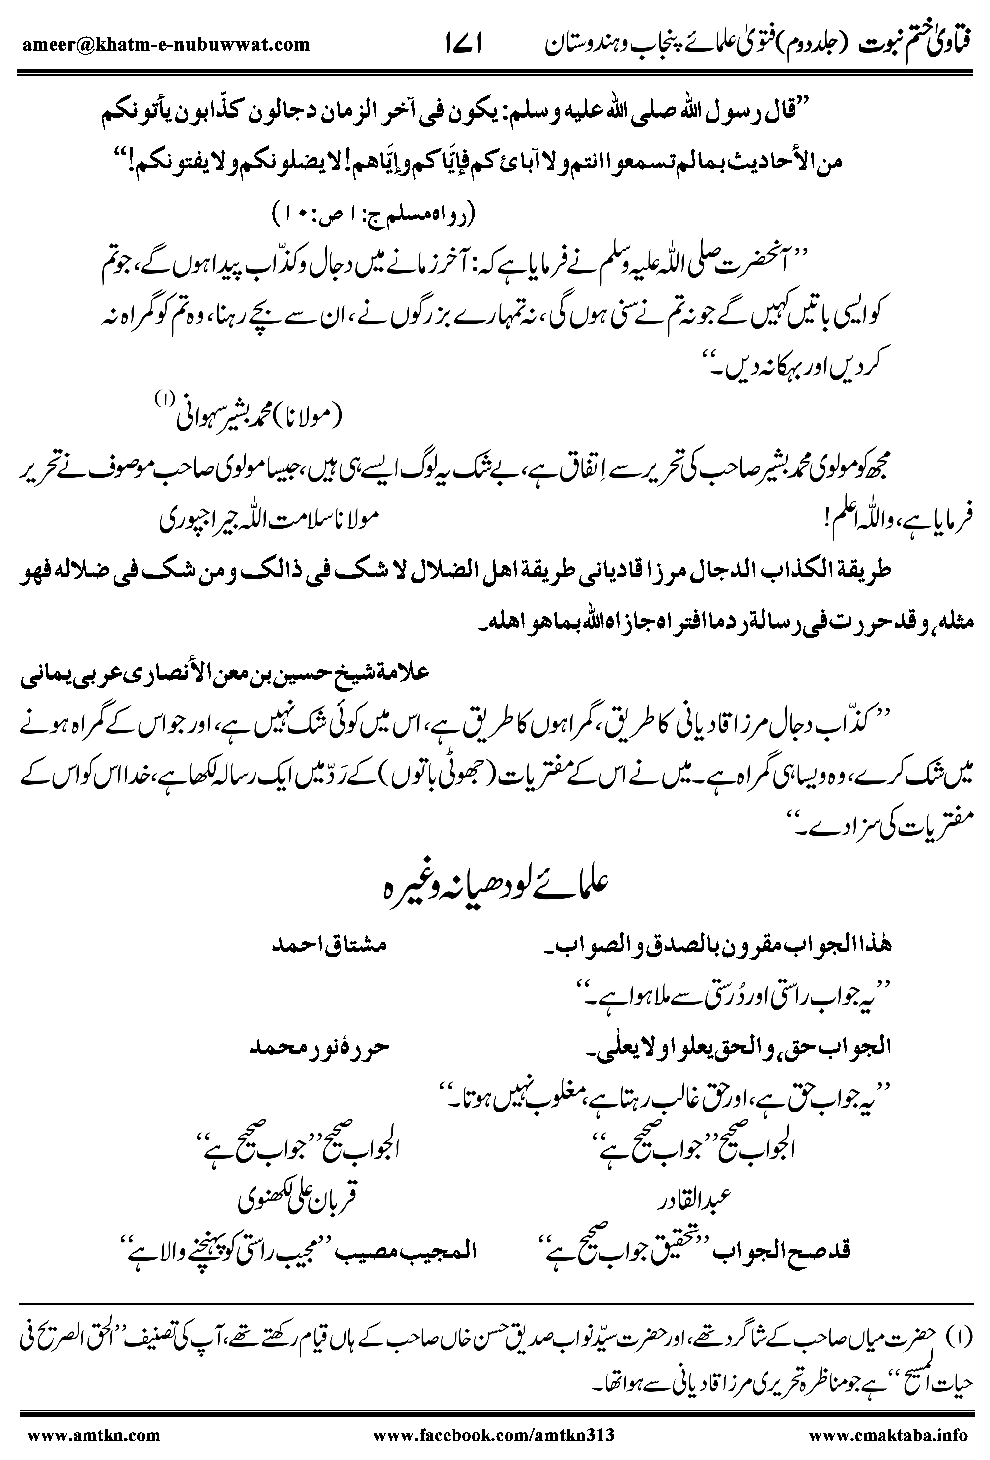 فتاویٰ ختم نبوت (جلد دوم) فتویٰ علمائے پنجاب و ہندوستان ۱۷۱ ameer@khatm-e-nubuwwat.com
”قال رسول الله صلى الله عليه وسلم: يكون فى آخر الزمان دجالون كذّابون يأتونكم
من الأحاديث بما لم تسمعوا انتم ولا آبائكم فإيّاكم وإيّاهم! لا يضلونكم ولا يفتونكم!“
(رواه مسلم ج: ۱ ص: ۱۰)
”آنحضرت صلی اللہ علیہ وسلم نے فرمایا ہے کہ: آخر زمانے میں دجال و کذّاب پیدا ہوں گے، جو تم
کو ایسی باتیں کہیں گے جو نہ تم نے سنی ہوں گی، نہ تمہارے بزرگوں نے، ان سے بچے رہنا، وہ تم کو گمراہ نہ
کردیں اور بہکا نہ دیں۔“
(مولانا) محمد بشیر سہوانی (۱)
مجھ کو مولوی محمد بشیر صاحب کی تحریر سے اِتفاق ہے، بے شک یہ لوگ ایسے ہی ہیں، جیسا مولوی صاحب موصوف نے تحریر
فرمایا ہے، واللہ اعلم! مولانا سلامت اللہ جیراجپوری
طريقة الكذاب الدجال مرزا قاديانى طريقة اهل الضلال لا شك فى ذالك ومن شك فى ضلاله فهو
مثله، وقد حررت فى رسالة رد ما افتراه جازاه الله بما هو اهله۔
علامة شيخ حسين بن معن الأنصارى عربى يمانى
”کذّاب دجال مرزا قادیانی کا طریق، گمراہوں کا طریق ہے، اس میں کوئی شک نہیں ہے، اور جو اس کے گمراہ ہونے
میں شک کرے، وہ ویسا ہی گمراہ ہے۔ میں نے اس کے مفتریات (جھوٹی باتوں) کے رَدّ میں ایک رسالہ لکھا ہے، خدا اس کو اس کے
مفتریات کی سزا دے۔“
علمائے لودھیانہ وغیرہ
هٰذا الجواب مقرون بالصدق والصواب۔ مشتاق احمد
”یہ جواب راستی اور دُرستی سے ملا ہوا ہے۔“
الجواب حق، والحق يعلوا ولا يعلىٰ۔ حررهٔ نور محمد
”یہ جواب حق ہے، اور حق غالب رہتا ہے، مغلوب نہیں ہوتا۔“
الجواب صحیح ”جواب صحیح ہے“ الجواب صحیح ”جواب صحیح ہے“
عبدالقادر قربان علی لکھنوی
قد صح الجواب ”تحقیق جواب صحیح ہے“ المجيب مصيب ”مجیب راستی کو پہنچنے والا ہے“
(۱) حضرت میاں صاحب کے شاگرد تھے، اور حضرت سیّد نواب صدیق حسن خاں صاحب کے ہاں قیام رکھتے تھے، آپ کی تصنیف ”الحق الصریح فی
حیات المسیح“ ہے جو مناظرہ تحریری مرزا قادیانی سے ہوا تھا۔
www.amtkn.com www.facebook.com/amtkn313 www.cmaktaba.info